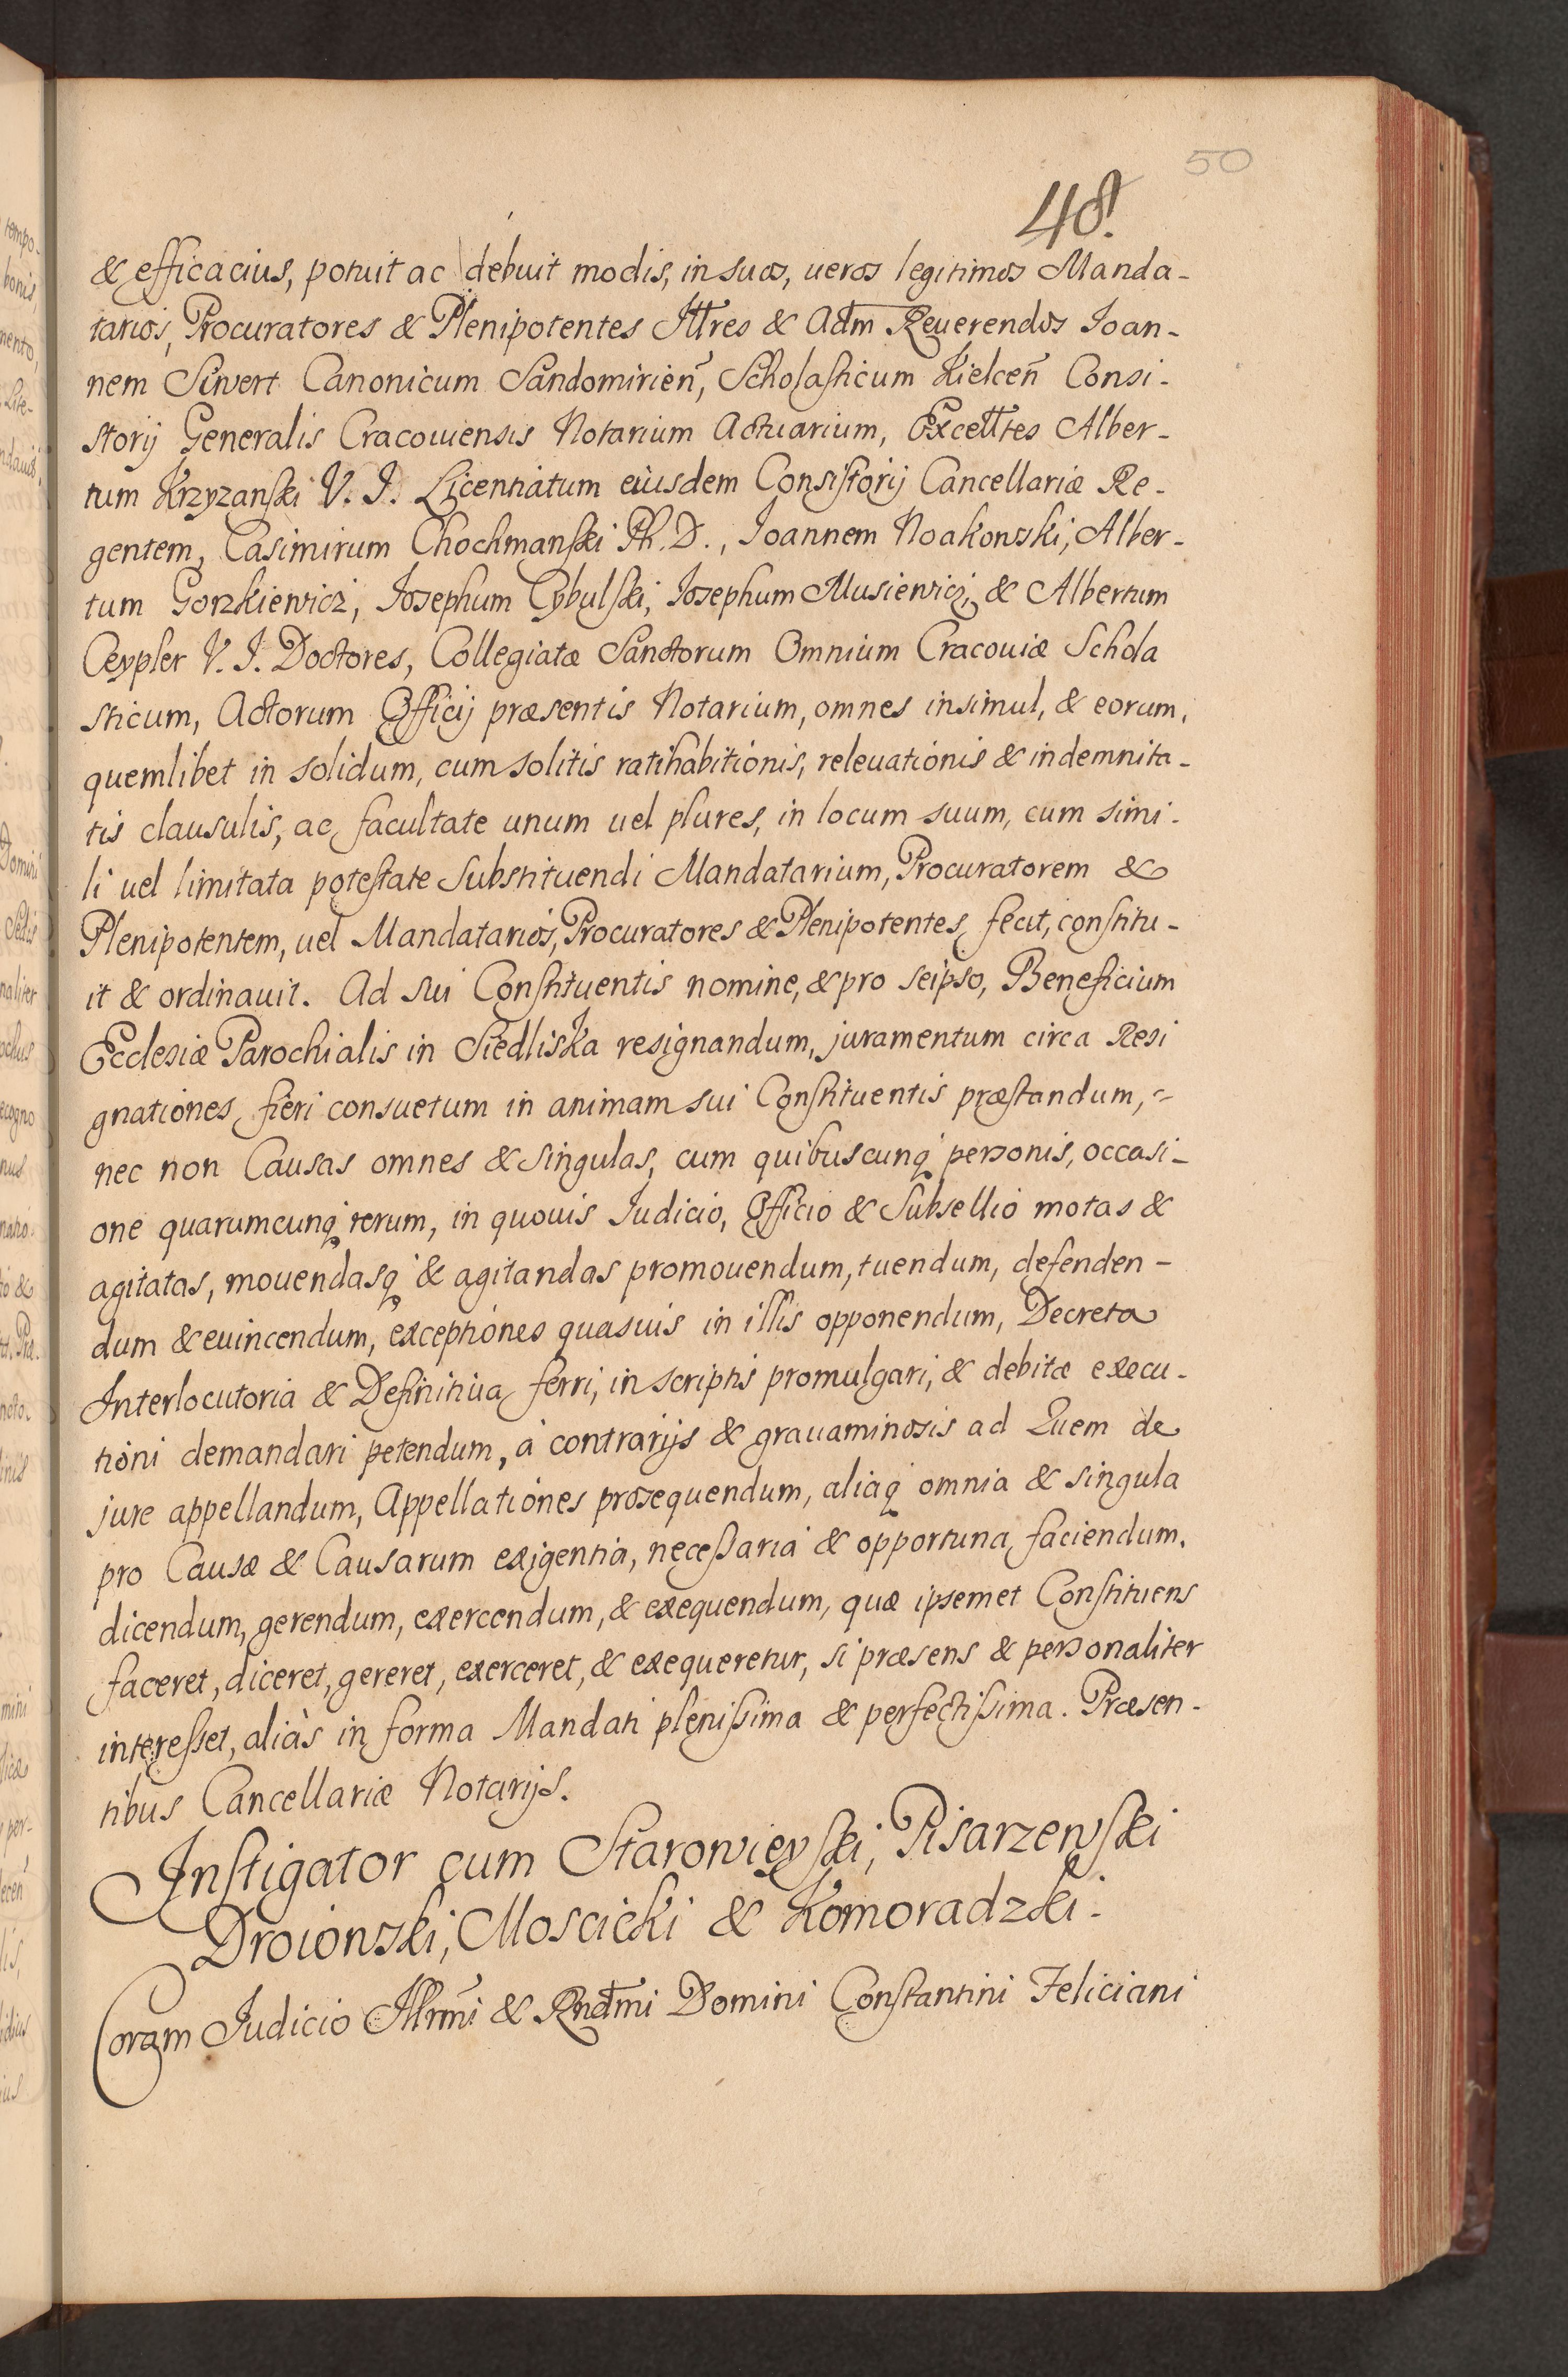 50
48.
& efficacius, potuit ac debuit modis, in suos, ueros legitimos Manda-
tarios, Procuratores & Plenipotentes Illres & Adm Reuerendos Ioan-
nem Siwert Canonicum Sandomirien̄, Scholasticum Kielcen̄ Consi-
storij Generalis Cracouiensis Notarium Actuarium, Excelltes Alber-
tum Krzyzanski V. I. Licentiatum eiusdem Consistorij Cancellariæ Re-
gentem, Casimirum Chochmanski Ph. D., Joannem Noakowski, Alber-
tum Gorzkiewicz, Josephum Cybulski, Josephum Musiewicz, & Albertum
Ceypler V. I. Doctores, Collegiatæ Sanctorum Omnium Cracouiæ Schola
sticum, Actorum Officij præsentis Notarium, omnes insimul, & eorum,
quemlibet in solidum, cum solitis ratihabitionis, releuationis & indemnita-
tis clausulis, ac facultate unum uel plures, in locum suum, cum simi-
li uel limitata potestate Substituendi Mandatarium, Procuratorem &
Plenipotentem, uel Mandatarios, Procuratores & Plenipotentes, fecit, constitu-
it & ordinauit. Ad sui Constituentis nomine, & pro seipso, Beneficium
Ecclesiæ Parochialis in Siedliska resignandum, juramentum circa Resi
gnationes, fieri consuetum in animam sui Constituentis præstandum,
nec non Causas omnes & singulas, cum quibuscunq personis, occasi-
one quarumcunq rerum, in quouis Iudicio, Officio & Subsellio motas &
agitatas, mouendasq & agitandas promouendum, tuendum, defenden-
dum & euincendum, exceptiones quasuis in illis opponendum, Decreta
Interlocutoria & Definitiua, ferri, in scriptis promulgari, & debitæ execu-
tioni demandari petendum, à contrarijs & grauaminosis ad Quem de
jure appellandum, Appellationes prosequendum, aliaq omnia & singula
pro Causæ & Causarum exigentia, necessaria & opportuna, faciendum,
dicendum, gerendum, exercendum, & exequendum, quæ ipsemet Constituens
faceret, diceret, gereret, exerceret, & exequeretur, si præsens & personaliter
interesset, aliàs in forma Mandati plenissima & perfectissima. Præsen-
tibus Cancellariæ Notarijs.
Instigator cum Starowieyski, Pisarzewski
Droionski, Moscicki & Komoradzki.
Coram Iudicio Illrmi & Rndmi Domini Constantini Feliciani